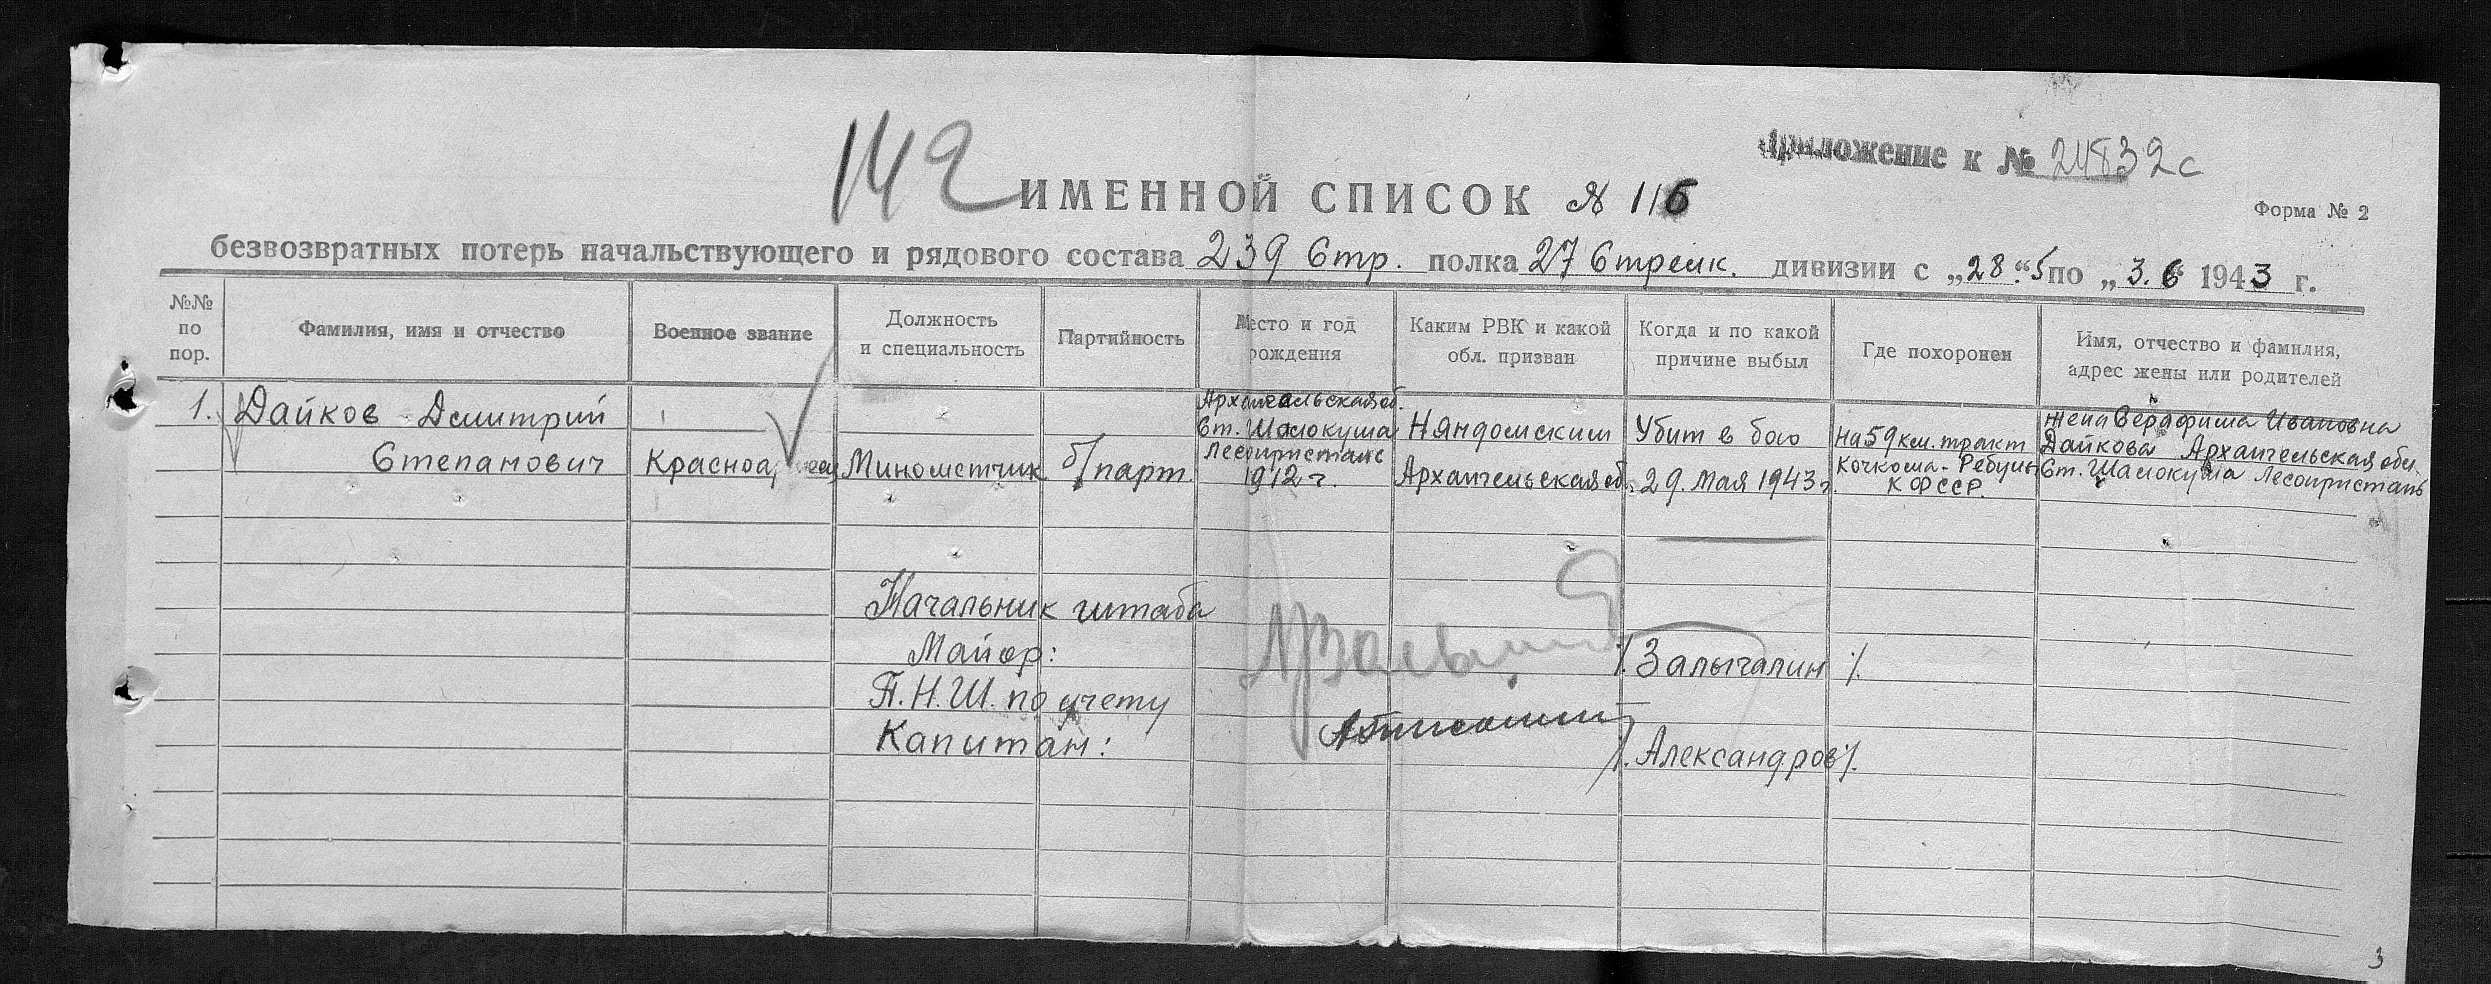 142
Приложение к № 24832с
ИМЕННОЙ СПИСОК № 116
Форма № 2
безвозвратных потерь начальствующего и рядового состава 239 Стр. полка 27 Стрелк. дивизии с „28.“5 по „3.6“ 1943 г.
№№ по пор.
Фамилия, имя и отчество
Военное звание
Должность и специальность
Партийность
Место и год рождения
Каким РВК и какой обл. призван
Когда и по какой причине выбыл
Где похоронен
Имя, отчество и фамилия, адрес жены или родителей
1.
Дайков Дмитрий
Степанович
Минометчик
б/парт.
Архангельская об.
Ст. Шалокуша
Лесопристань
1912 г.
Няндомским
Архангельская об.
Убит в бою
29. Мая 1943 г.
На 59 км. тракт
Кочкома-Ребулы
КФССР.
Жена Серафима Ивановна
Дайкова Архангельская обл.
Ст. Шалокуша Лесопристань
Начальник штаба
Майор:
/. Залычалин /.
П.Н.Ш. по учету
Капитан:
/. Александров /.
3